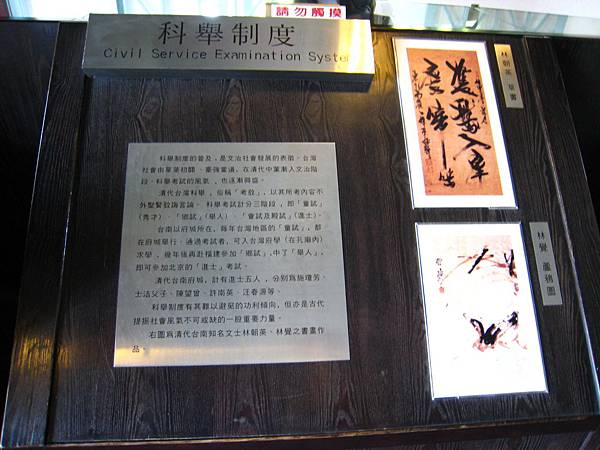 請勿觸摸
科舉制度
Civil Service Examination System
科舉制度的普及，是文治社會發展的表徵。台灣
社會由草萊初闢、豪強當道，在清代中葉漸入文治階
段，科舉考試的風氣，也逐漸興盛。
清代台灣科舉，俗稱「考教」，以其所考內容不
外聖賢教誨言論。科舉考試計分三階段，即「童試」
(秀才)、「鄉試」(舉人)、「會試及殿試」(進士)。
台南以府城所在，每年台灣地區的「童試」，都
在府城舉行，通過考試者，可入台灣府學（在孔廟內）
求學，幾年後再赴福建參加「鄉試」，中了「舉人」，
即可參加北京的「進士」考試。
清代台南府城，計有進士五人，分別為施瓊芳、
士洁父子、陳望曾、許南英、汪春源等。
科舉制度有其難以避諱的功利傾向，但亦是古代
提振社會風氣不可或缺的一股重要力量。
右圖為清代台南知名文士林朝英、林覺之書畫作
品。
林朝英 草書
林覺 蘆鴨圖